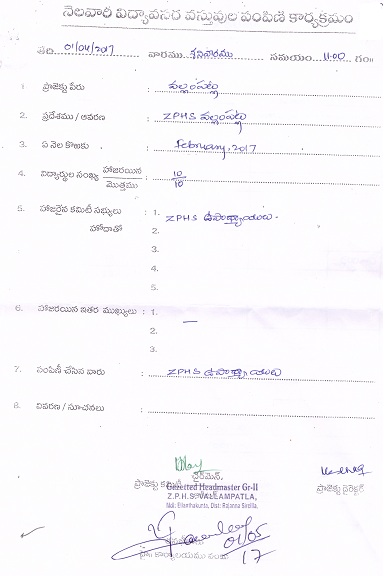 నెలవారి విద్యావసర వస్తువుల పంపిణి కార్యక్రమం
తేది. 01/04/2017 వారము శనివారము సమయం 11:00 గం॥
1. ప్రాజెక్టు పేరు : వల్లంపట్ల
2. ప్రదేశము / ఆవరణ : ZPHS వల్లంపట్ల
3. ఏ నెల కొఱకు : February, 2017
4. విద్యార్థుల సంఖ్య హాజరయిన / మొత్తము : 10/10
5. హాజరైన కమిటీ సభ్యులు : 1. ZPHS ఉపాధ్యాయులు.
హోదాతో 2.
3.
4.
5.
6. హాజరయిన ఇతర ముఖ్యులు : 1.
2. —
3.
7. పంపిణీ చేసిన వారు : ZPHS ఉపాధ్యాయులు
8. వివరణ / సూచనలు :
ప్రాజెక్టు కమిటీ ఛైర్మెన్,
ప్రాజెక్టు డైరెక్టర్
Gazetted Headmaster Gr-II
Z.P.H.S. VALLAMPATLA,
Mdl: Ellanthakunta, Dist: Rajanna Sircilla.
01/05
17